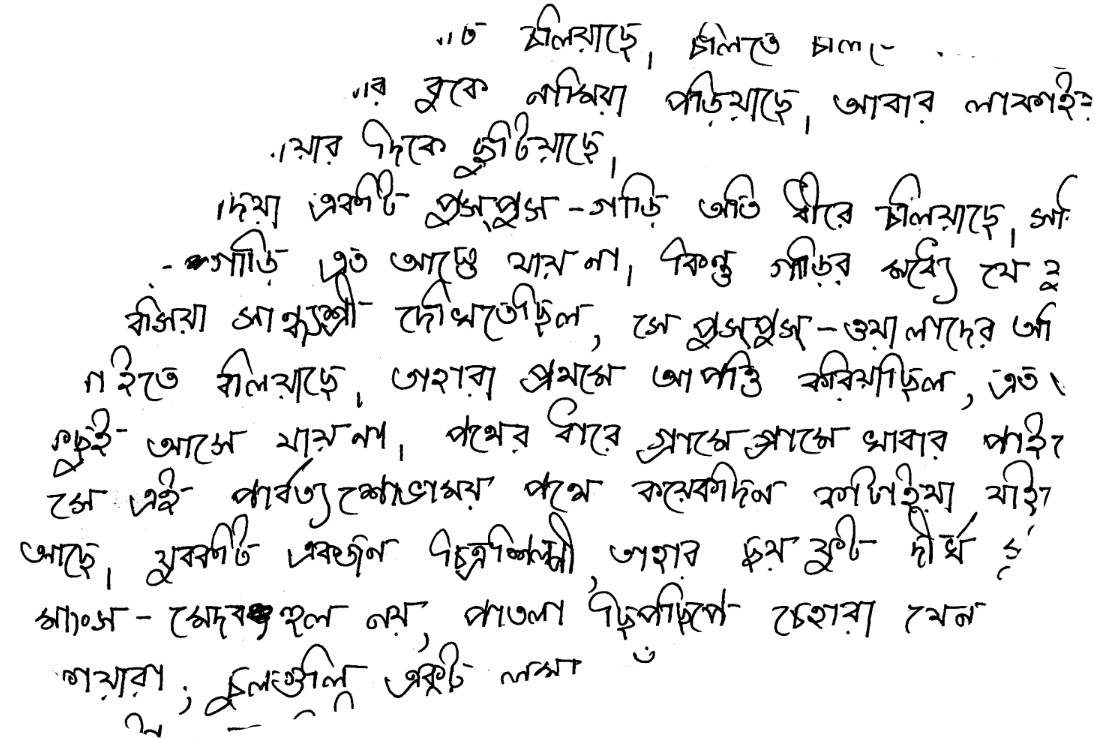 চলিয়াছে, চলিতে
বুকে নামিয়া পড়িয়াছে, আবার
দিকে ছুটিয়াছে,
দিয়া একটি পুস্‌পুস-গাড়ি অতি ধীরে চলিয়াছে,
গাড়ি এত আস্তে যায় না, কিন্তু গাড়ির মধ্যে যে
বসিয়া সান্ধ্যশ্রী দেখিতেছিল, সে পুস্‌পুস্-ওয়ালাদের
বলিয়াছে, তাহারা প্রথমে আপত্তি করিয়াছিল, এত
আসে যায় না, পথের ধারে গ্রামে গ্রামে খাবার
সে এই পার্বত্য শোভাময় পথে কয়েকদিন কাটাইয়া
আছে, যুবকটি একজন চিত্রশিল্পী, তাহার ছয় ফুট দীর্ঘ
মাংস-মেদবহুল নয়, পাতলা ছিপছিপে চেহারা যেন
চুলগুলি একটু লম্বা